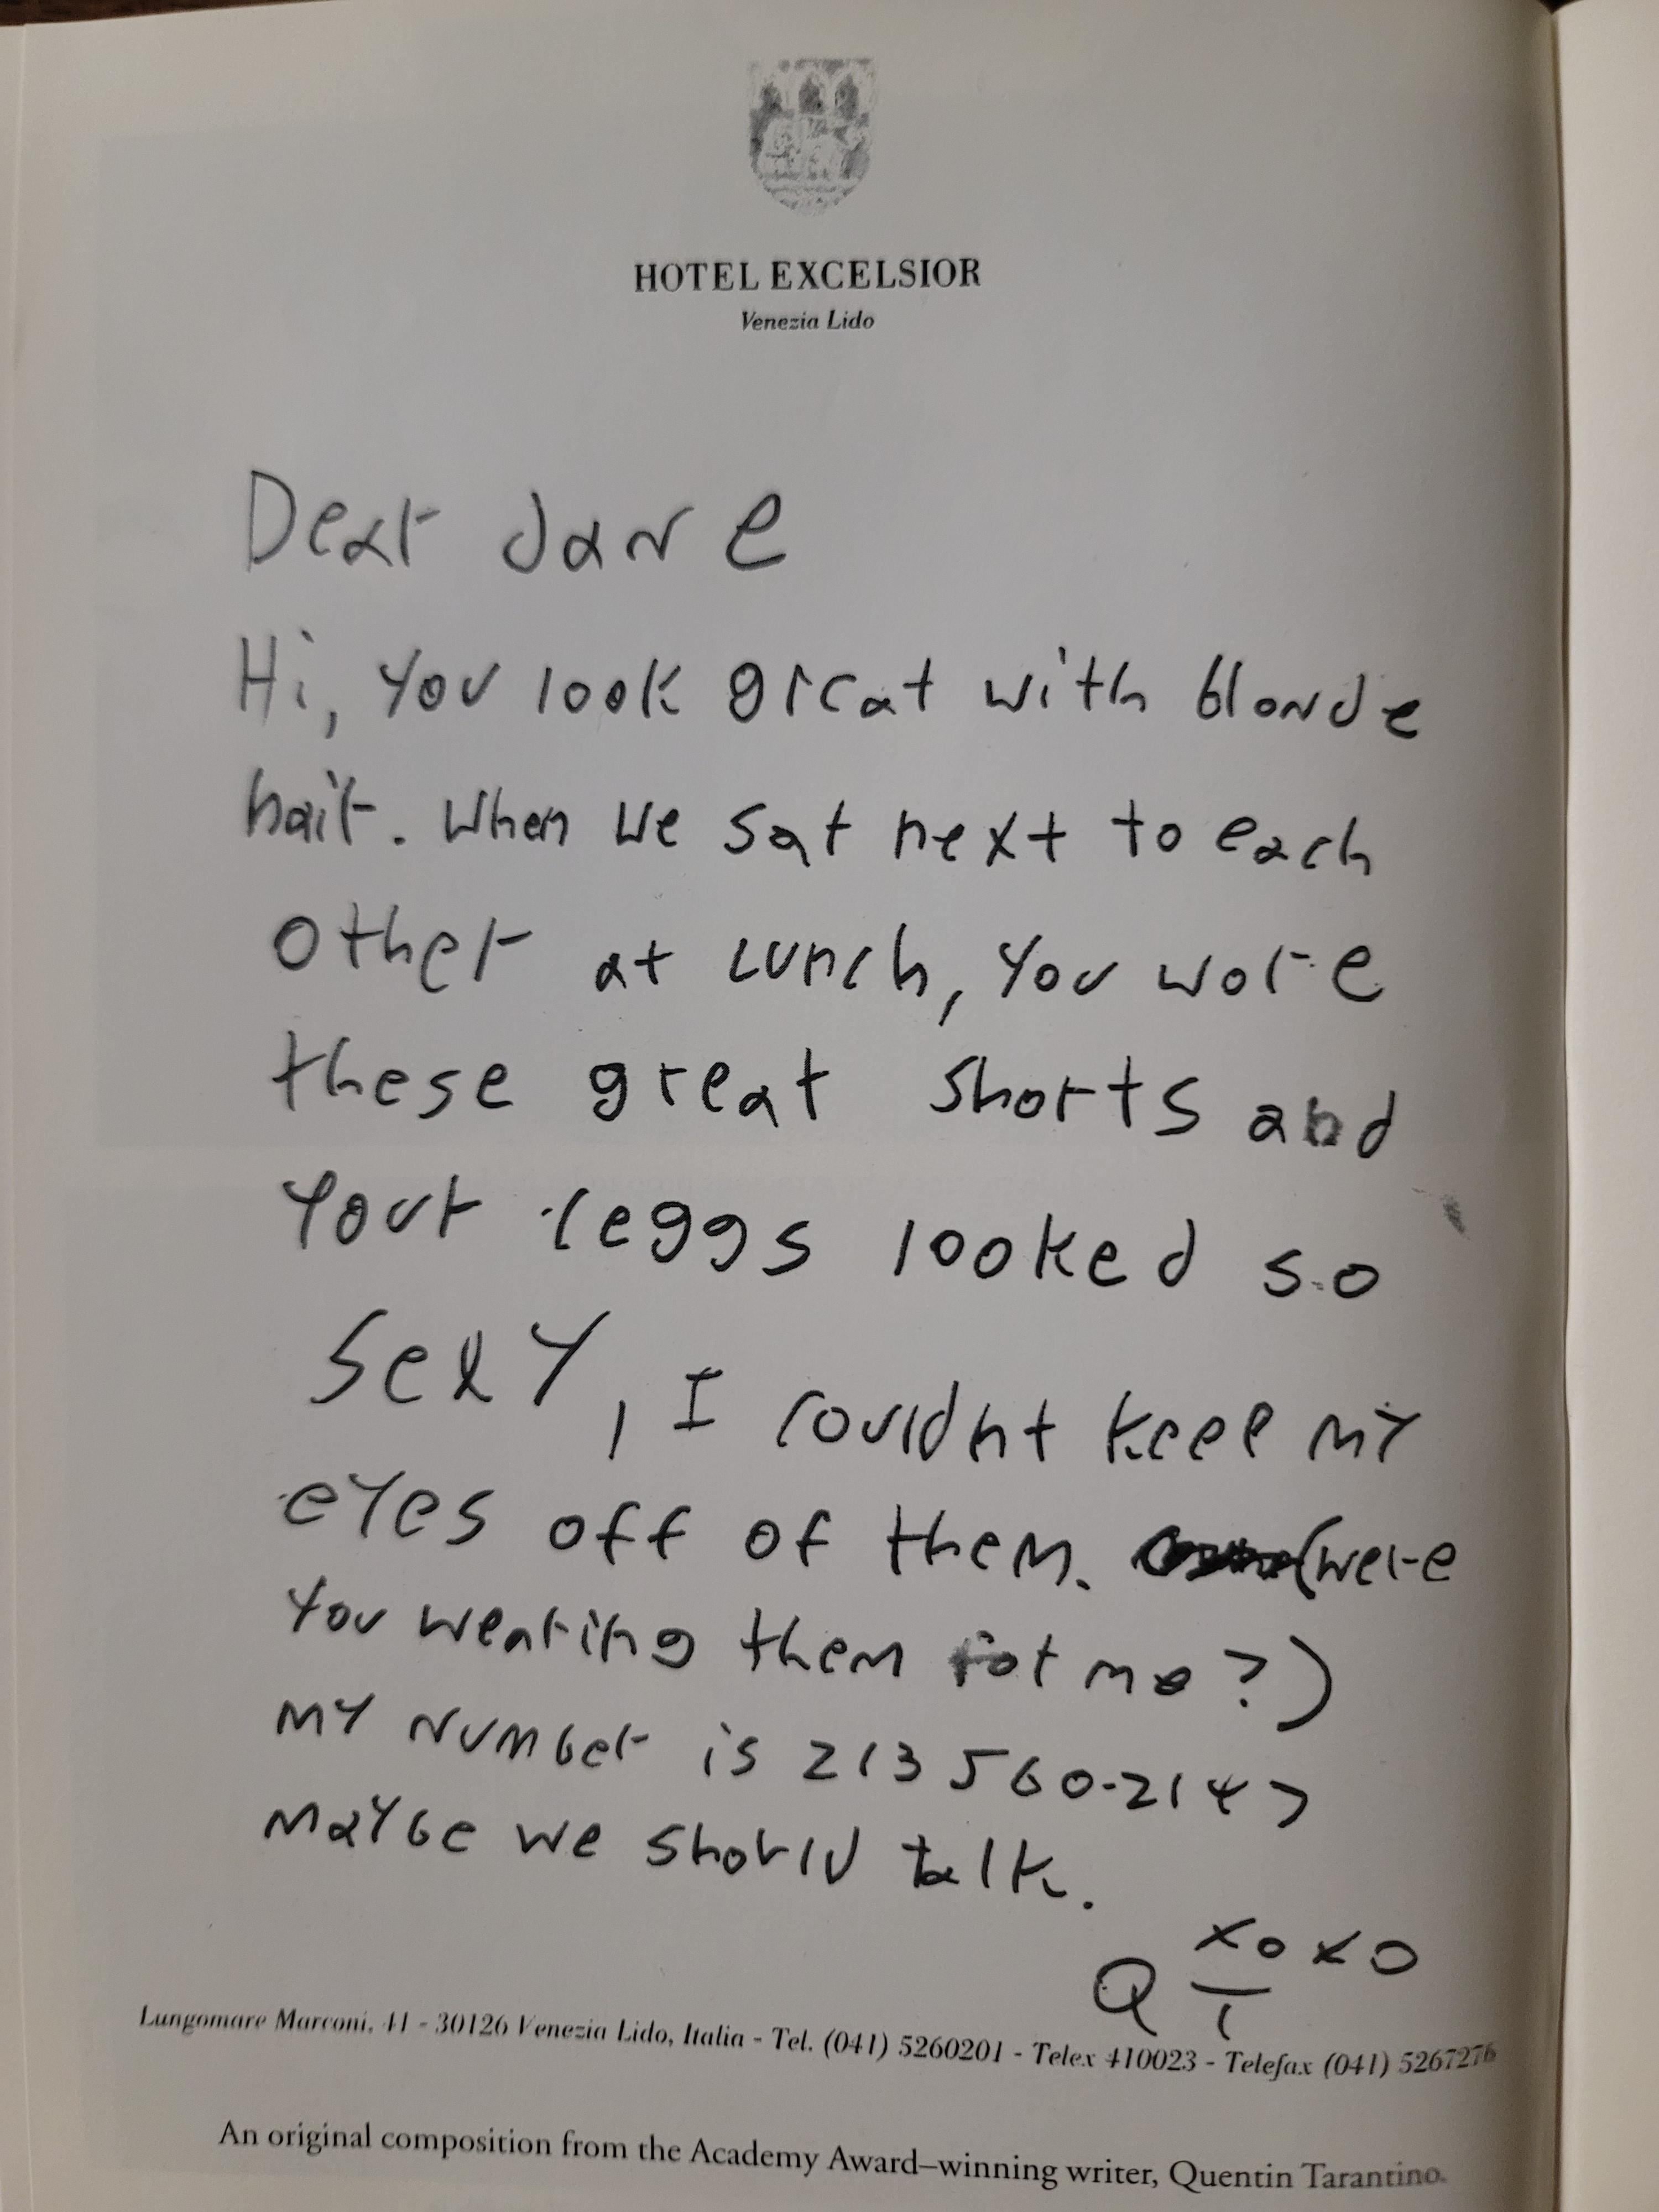 HOTEL EXCELSIOR
Venezia Lido
Dear Jane
Hi, you look great with blonde
hair. When we sat next to each
other at lunch, you wore
these great shorts and
your leggs looked so
sexy, I couldnt keep my
eyes off of them. (were
you wearing them for me?)
my number is 213 560-2147
maybe we should talk.
xoxo
QT
Lungomare Marconi, 41 - 30126 Venezia Lido, Italia - Tel. (041) 5260201 - Telex 410023 - Telefax (041) 5267276
An original composition from the Academy Award–winning writer, Quentin Tarantino.